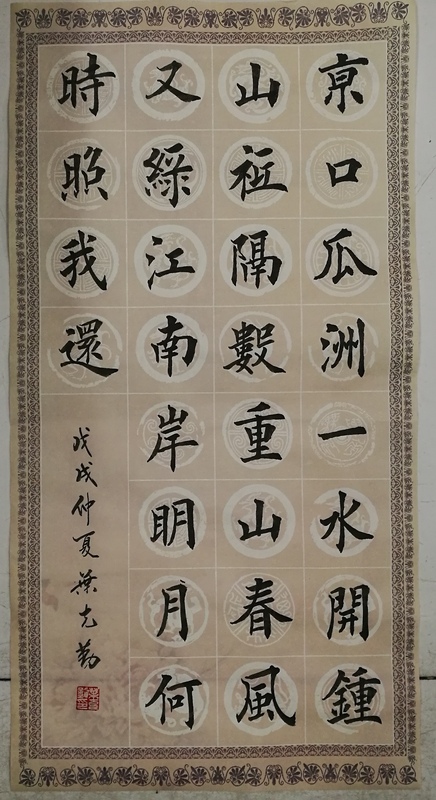 京口瓜洲一水開鍾
山祗隔數重山春風
又綠江南岸明月何
時照我還
戊戌仲夏葉克勤